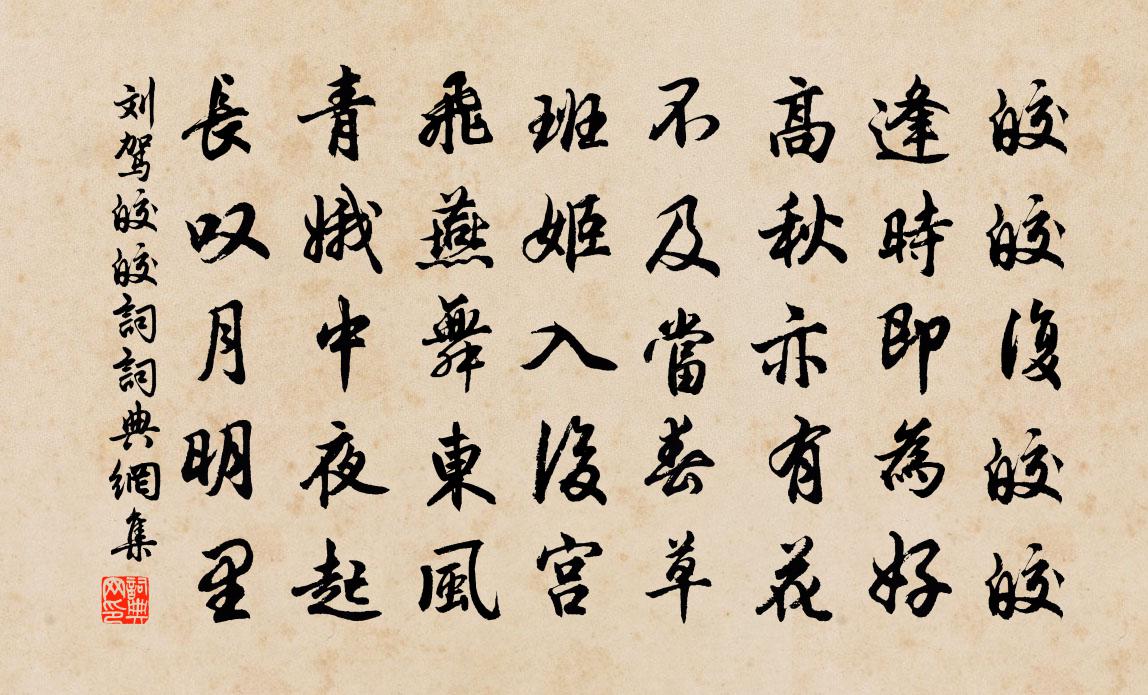 皎皎復皎皎
逢時即為好
高秋亦有花
不及當春草
班姬入後宫
飛燕舞東風
青娥中夜起
長叹月明里
刘驾皎皎詞詞典網集
詞典网印